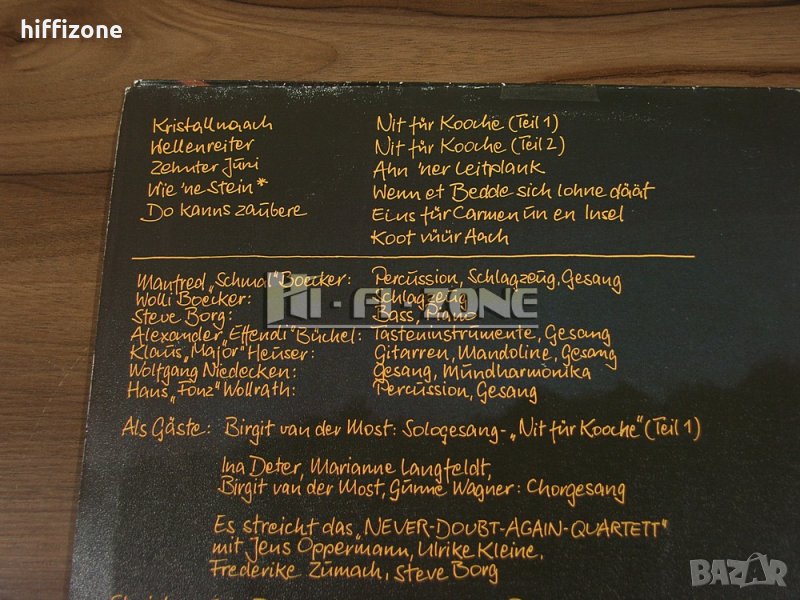 hiffizone
Kristallnaach
Wellenreiter
Zehnter Juni
Wie 'ne Stein*
Do kanns zaubere
Nit für Kooche (Teil 1)
Nit für Kooche (Teil 2)
Ahn 'ner Leitplank
Wenn et Bedde sich lohne däät
Eins für Carmen un en Insel
Koot vüür Aach
Manfred „Schmal" Boecker: Percussion, Schlagzeug, Gesang
Wolli Boecker: Schlagzeug
Steve Borg: Bass, Piano
Alexander „Effendi" Büchel: Tasteninstrumente, Gesang
Klaus „Major" Heuser: Gitarren, Mandoline, Gesang
Wolfgang Niedecken: Gesang, Mundharmonika
Hans „Fonz" Wollrath: Percussion, Gesang
HI-FI-ZONE
Als Gäste: Birgit van der Most: Sologesang - „Nit für Kooche" (Teil 1)
Ina Deter, Marianne Langfeldt,
Birgit van der Most, Gunne Wagner: Chorgesang
Es streicht das „NEVER-DOUBT-AGAIN-QUARTETT"
mit Jens Oppermann, Ulrike Kleine,
Frederike Zumach, Steve Borg
BAZAR